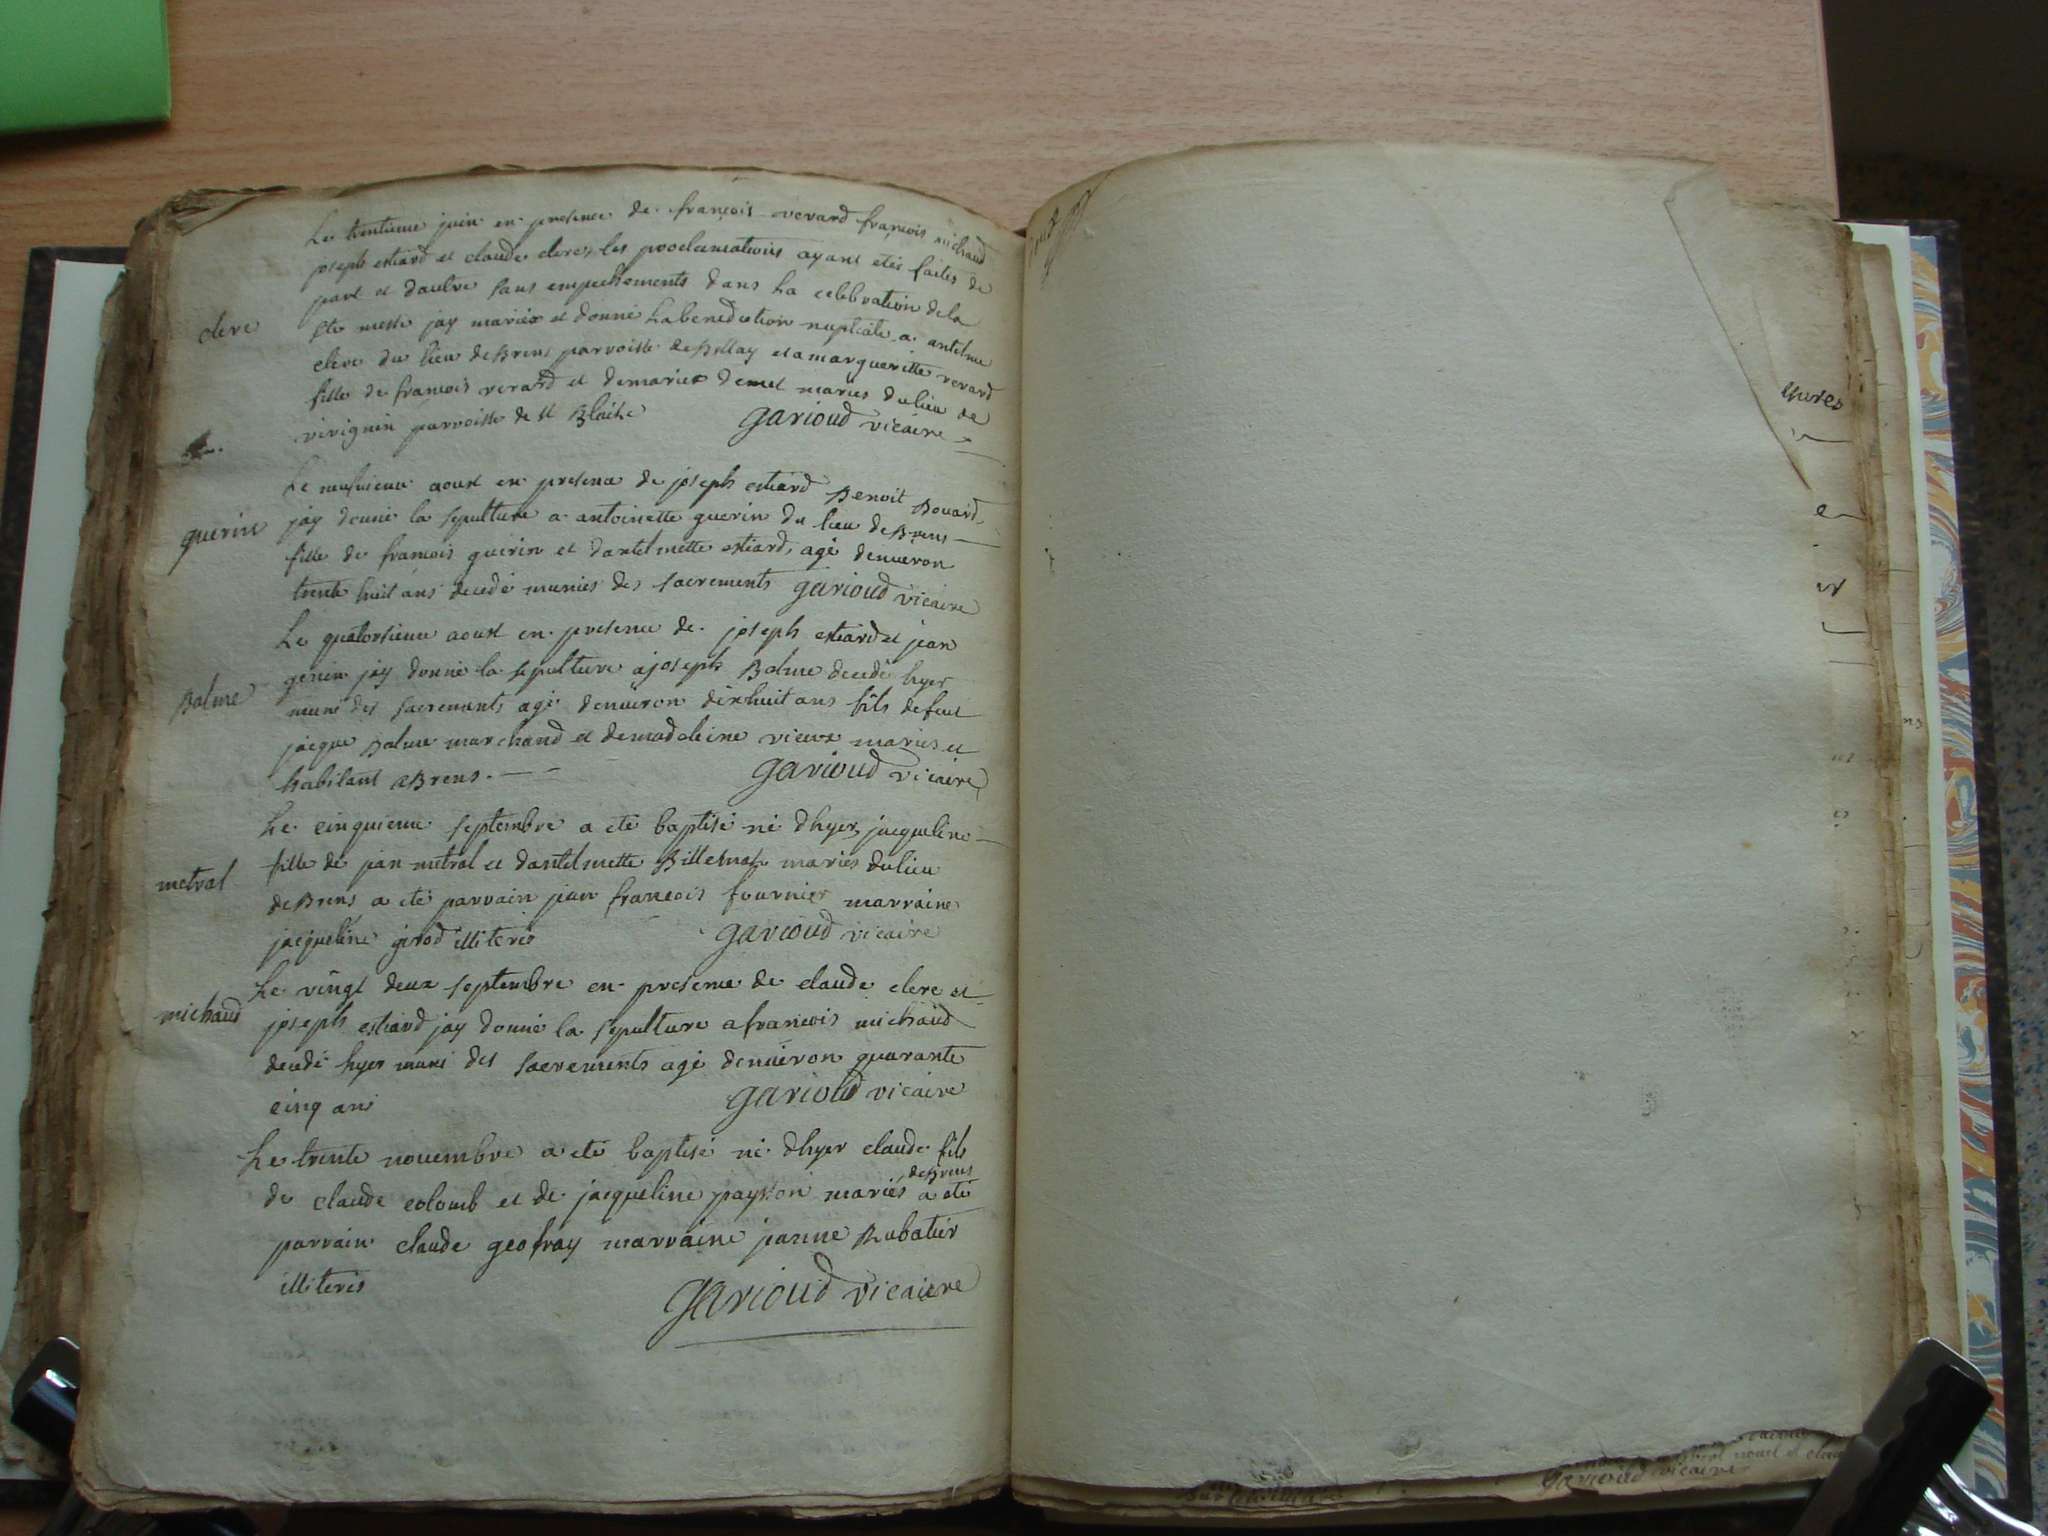 Le trentieme juin en presence de françois verard françois michaud
joseph estiard et claude clere, les proclamations ayant etés faites de
part et daultre sans empechements dans la celebration de la
ste messe jay mariéz et donné la benediction nuptiale a antelme
clere
clere du lieu de Brens parroisse de Bellay et a margueritte verard
fille de francois verard et de mariez demet mariés du lieu de
virignin parroisse de st Blaise garioud vicaire
Le neufvieme aoust en presence de joseph estiard Benoit Bouard
guerin
jay donné la sepulture a antoinette guerin du lieu de Brens
fille de francois guerin et dantelmette estiard, agé denuiron
trente huit ans decedé munies des sacrements garioud vicaire
Le quatorsieme aoust en presence de joseph estiard et jean
genin jay donné la sepulture a joseph Balme decedé hyer
Balme
muni des sacrements agé denuiron dixhuit ans fils de feut
jacque Balme marchand et de madeleine vieux mariés et
habitant a Brens. garioud vicaire
Le cinquieme septembre a eté baptisé né dhyer, jacqueline
fille de jean metral et dantelmette Billemaz mariés du lieu
metral
de Brens a eté parrain jean francois fournier marraine
jacqueline girod illiterés garioud vicaire
Le vingt deux septembre en presence de claude clere et
michaud
joseph estiard jay donné la sepulture a francois michaud
decedé hyer muni des sacrements agé denuiron quarante
cinq ans garioud vicaire
Le trente nouembre a eté baptisé né dhyer claude fils
de Brens
de claude colomb et de jacqueline payson mariés a eté
parrain claude geofray marraine janne Rubatier
illiterés garioud vicaire
garioud vicaire